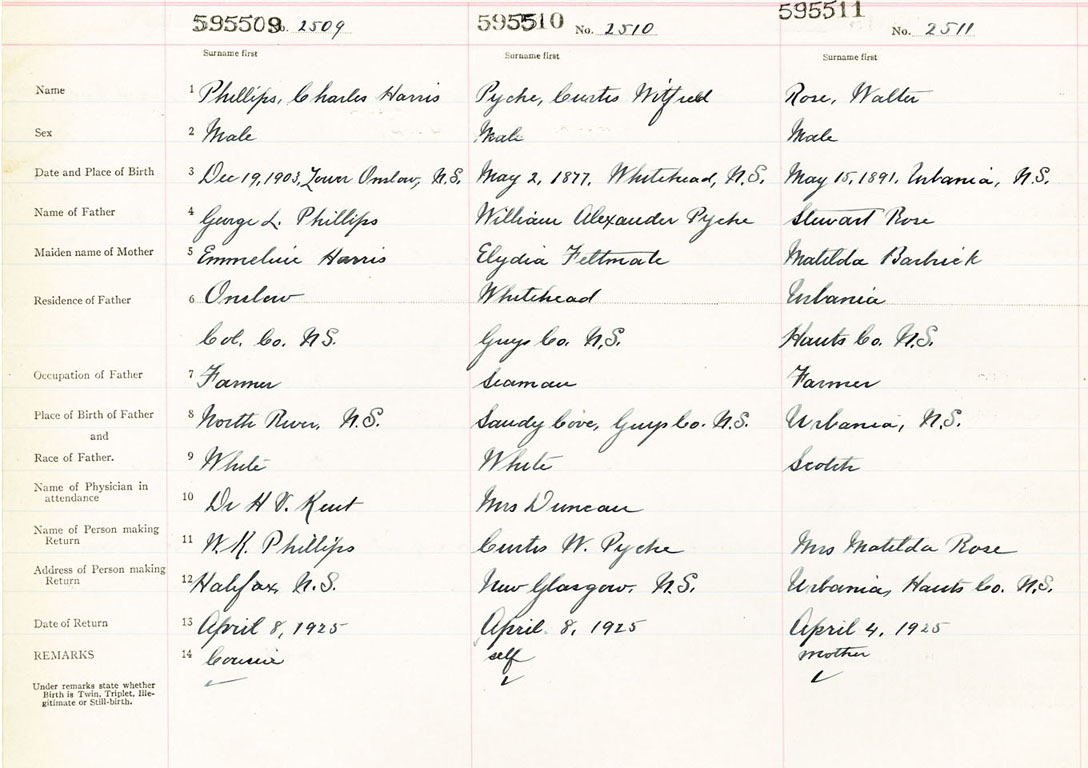 595509 No. 2509 595510 No. 2510 595511 No. 2511
Surname first Surname first Surname first
Name 1 Phillips, Charles Harris Pyche, Curtis Witfred Rose, Walter
Sex 2 Male Male Male
Date and Place of Birth 3 Dec 19, 1903, Lower Onslow, N.S. May 2, 1877, Whitehead, N.S. May 15, 1891, Urbania, N.S.
Name of Father 4 George L. Phillips William Alexander Pyche Stewart Rose
Maiden name of Mother 5 Emmeline Harris Elydia Feltmate Matilda Barbrick
Residence of Father 6 Onslow Whitehead Urbania
Col. Co. N.S. Guys Co. N.S. Hants Co. N.S.
Occupation of Father 7 Farmer Seaman Farmer
Place of Birth of Father 8 North River, N.S. Sandy Cove, Guys Co. N.S. Urbania, N.S.
and
Race of Father. 9 White White Scotch
Name of Physician in
attendance 10 Dr H V. Kent Mrs Duncan
Name of Person making
Return 11 W. K. Phillips Curtis W. Pyche Mrs Matilda Rose
Address of Person making
Return 12 Halifax, N.S. New Glasgow, N.S. Urbania, Hants Co. N.S.
Date of Return 13 April 8, 1925 April 8, 1925 April 4, 1925
REMARKS 14 Cousin self mother
Under remarks state whether
Birth is Twin, Triplet, Ille-
gitimate or Still-birth.